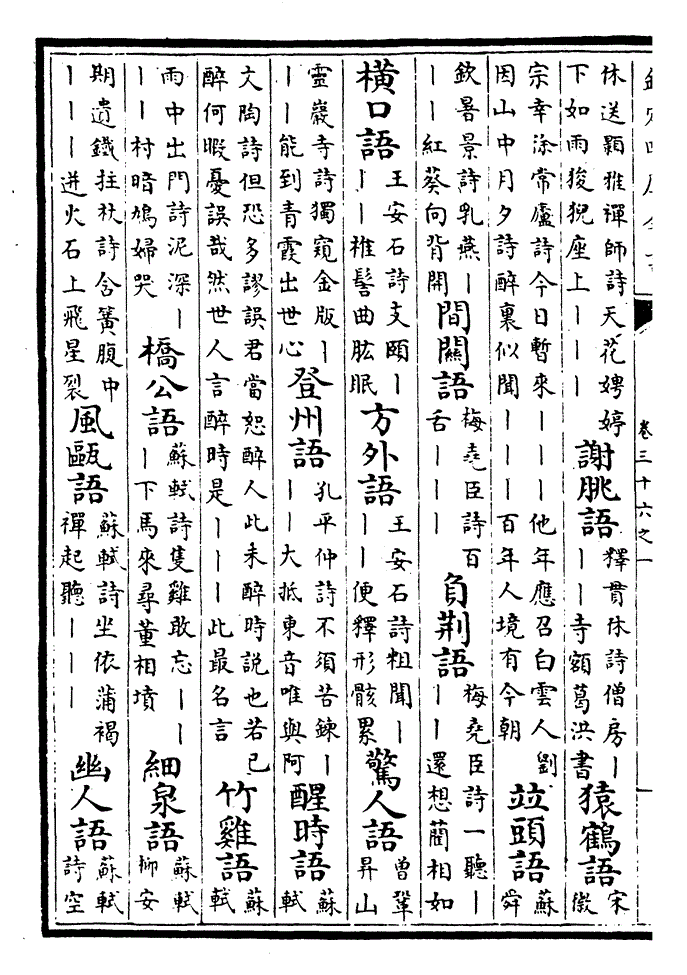 卷三十六之一
休送顥雅禪師詩天花娉婷下如雨狻猊座上丨丨丨謝朓語釋貫休詩僧房丨丨丨寺額葛洪書猿鶴語宋徽
宗幸涂常廬詩今日暫來丨丨丨他年應召白雲人劉因山中月夕詩醉裏似聞丨丨丨百年人境有今朝竝頭語蘇舜
欽暑景詩乳燕丨丨丨紅葵向背開間關語梅堯臣詩百舌丨丨丨負荊語梅堯臣詩一聽丨丨丨還想藺相如
橫口語王安石詩支頤丨丨丨椎髻曲肱眠方外語王安石詩粗聞丨丨丨便釋形骸累驚人語曾鞏昇山
靈巖寺詩獨窺金版丨丨丨能到青霞出世心登州語孔平仲詩不須苦鍊丨丨丨大抵東音唯與阿醒時語蘇軾
文陶詩但恐多謬誤君當恕醉人此未醉時説也若已醉何暇憂誤哉然世人言醉時是丨丨丨此最名言竹雞語蘇軾
雨中出門詩泥深丨丨丨村暗鳩婦哭橋公語蘇軾詩隻雞敢忘丨丨丨下馬來尋董相墳細泉語蘇軾柳安
期遺鐵拄杖詩含簧腹中丨丨丨迸火石上飛星裂風甌語蘇軾詩坐依蒲褐禪起聽丨丨丨幽人語蘇軾詩空